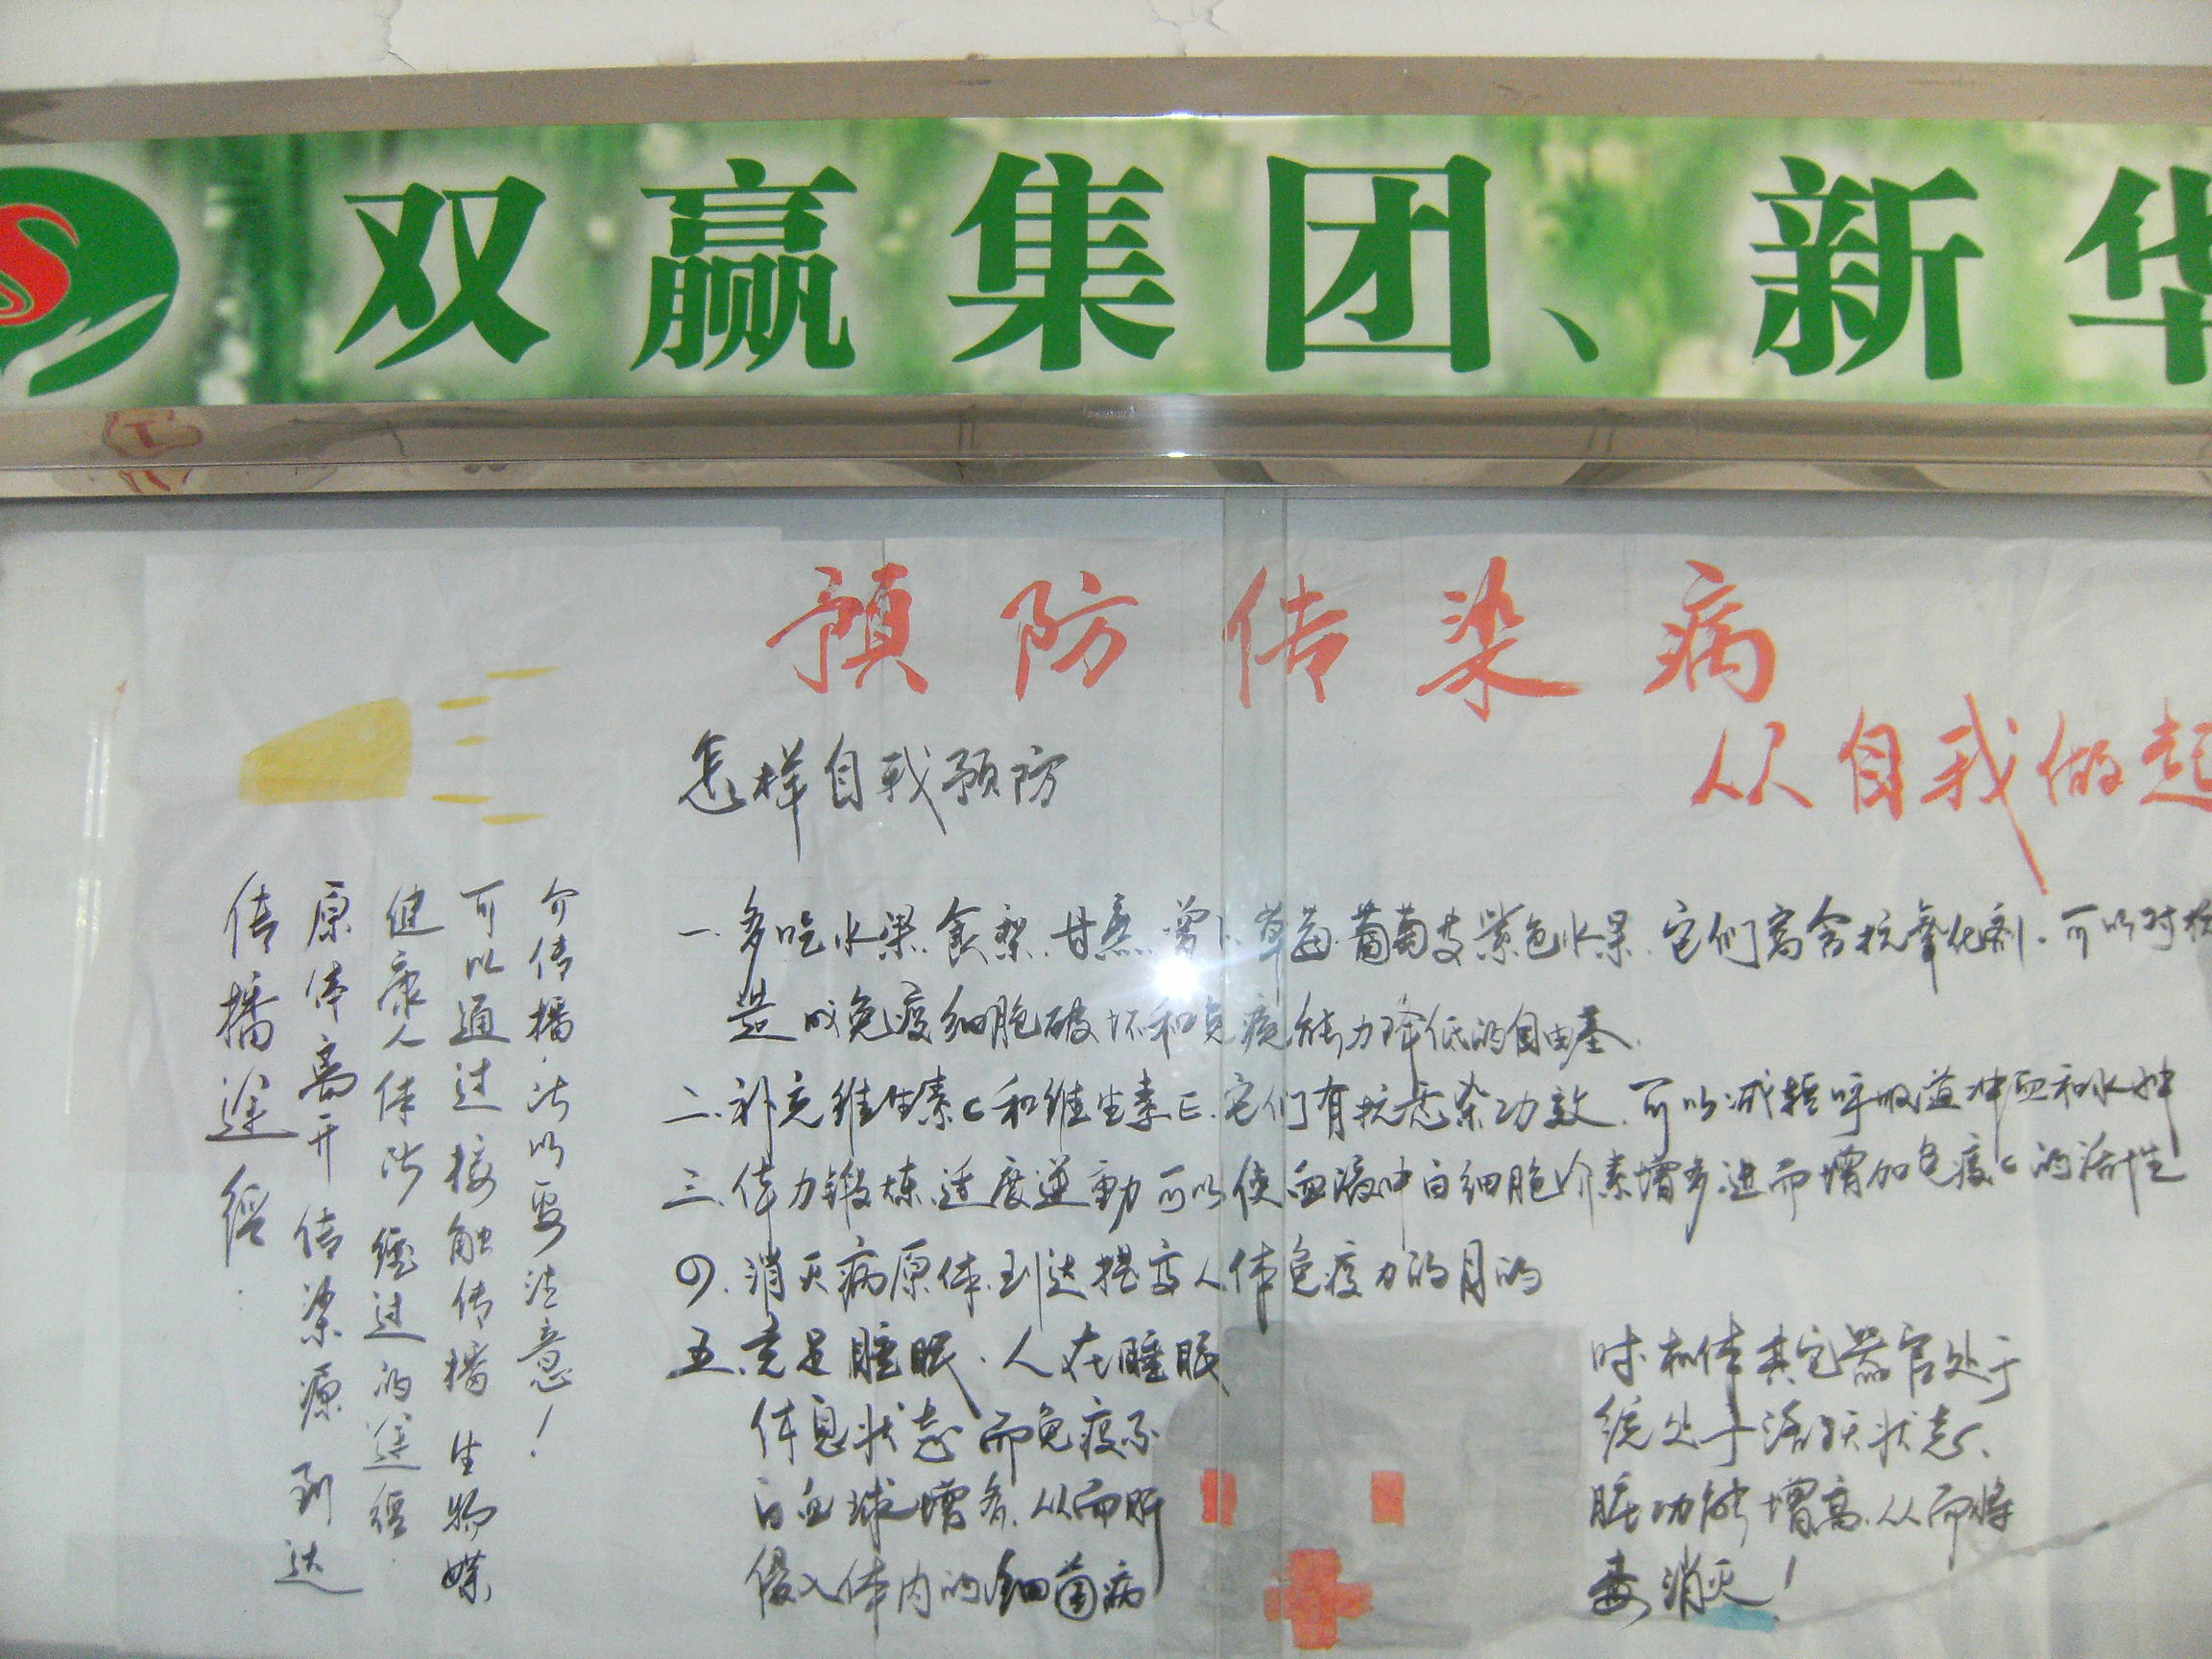 双赢集团、新华
预防传染病
从自我做起
怎样自我预防
传播途径:
原体离开传染源到达
健康人体所经过的途径.
可以通过接触传播生物媒
介传播.所以要注意!
一.多吃水果.食 .甘蔗. .草莓.葡萄 紫色水果.它们富含抗氧化剂.可以对抗
造成免疫细胞破坏和免疫能力降低的自由基.
二.补充维生素C和维生素E.它们有抗 功效.可以减轻呼吸道冲血和水肿
三.体力锻炼.适度运動可以使血液中白细胞介素增多进而增加免疫C的活性
四.消灭病原体.到达提高人体免疫力的目的
五.充足睡眠.人在睡眠时.机体其它器官处于
休息状态而免疫系统处于活跃状态.
白血球增多.从而肝脏功能增高.从而将
侵入体内的细菌病毒消灭!